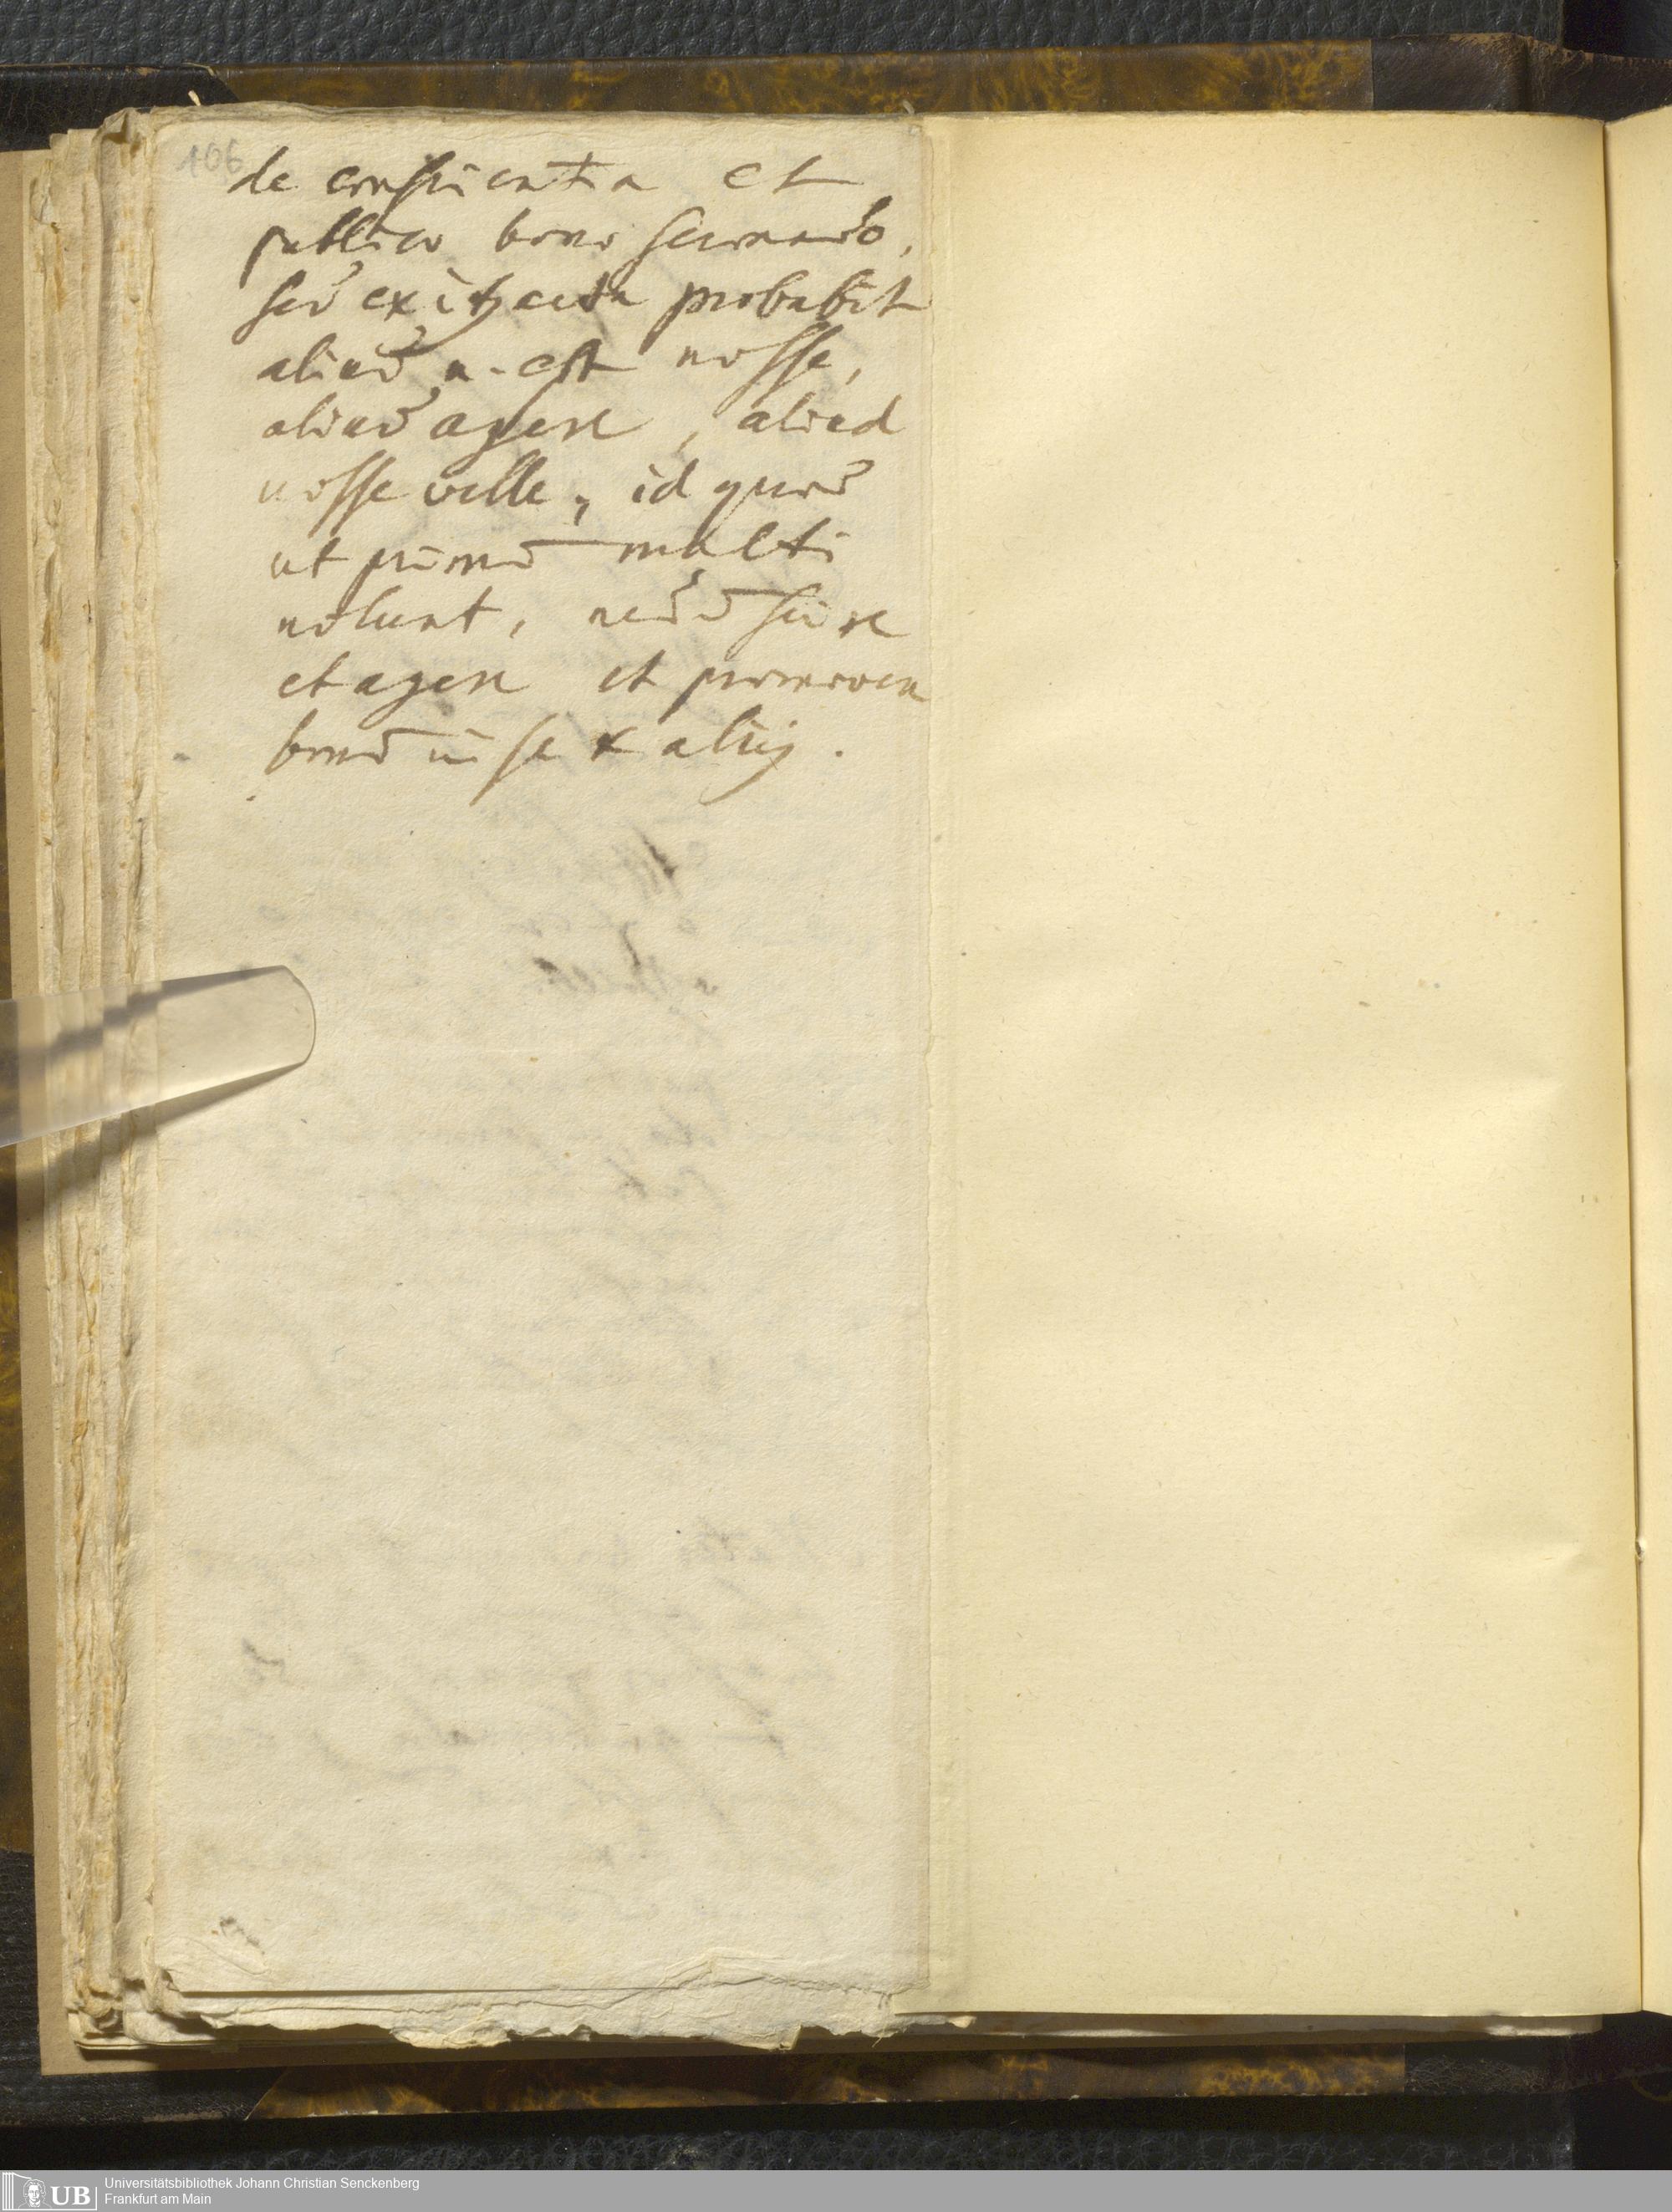 106
de conscientia et
publico bono sermando,
sed ex his aūdu probabit
aliud n. est nosse,
aliud agere, aliud
nosse velle, id quod
ut primū multi
nolunt, nedū scire
et agere et promovere
bonū in se & aliis.
UB Universitätsbibliothek Johann Christian Senckenberg
Frankfurt am Main